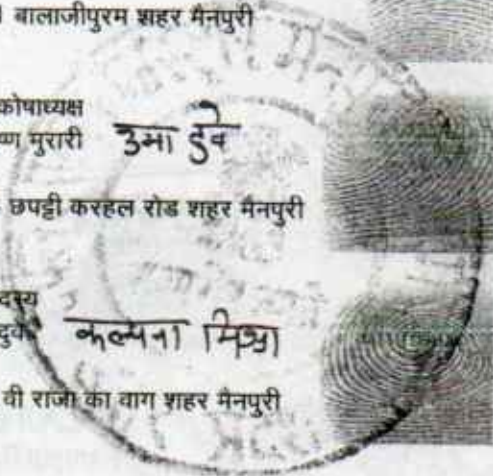 बालाजीपुरम शहर मैनपुरी
कोषाध्यक्ष
मुरारी उमा दुवे
छपट्टी करहल रोड शहर मैनपुरी
कल्पना मिश्रा
वी राजा का वाग शहर मैनपुरी